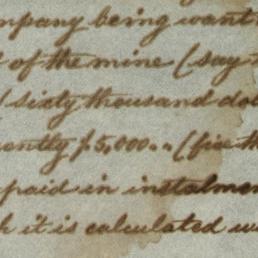 mpany being want
of the mine (say
sixty thousand dol
ently $5,000.. (five th
paid in instalmen
h it is calculated w